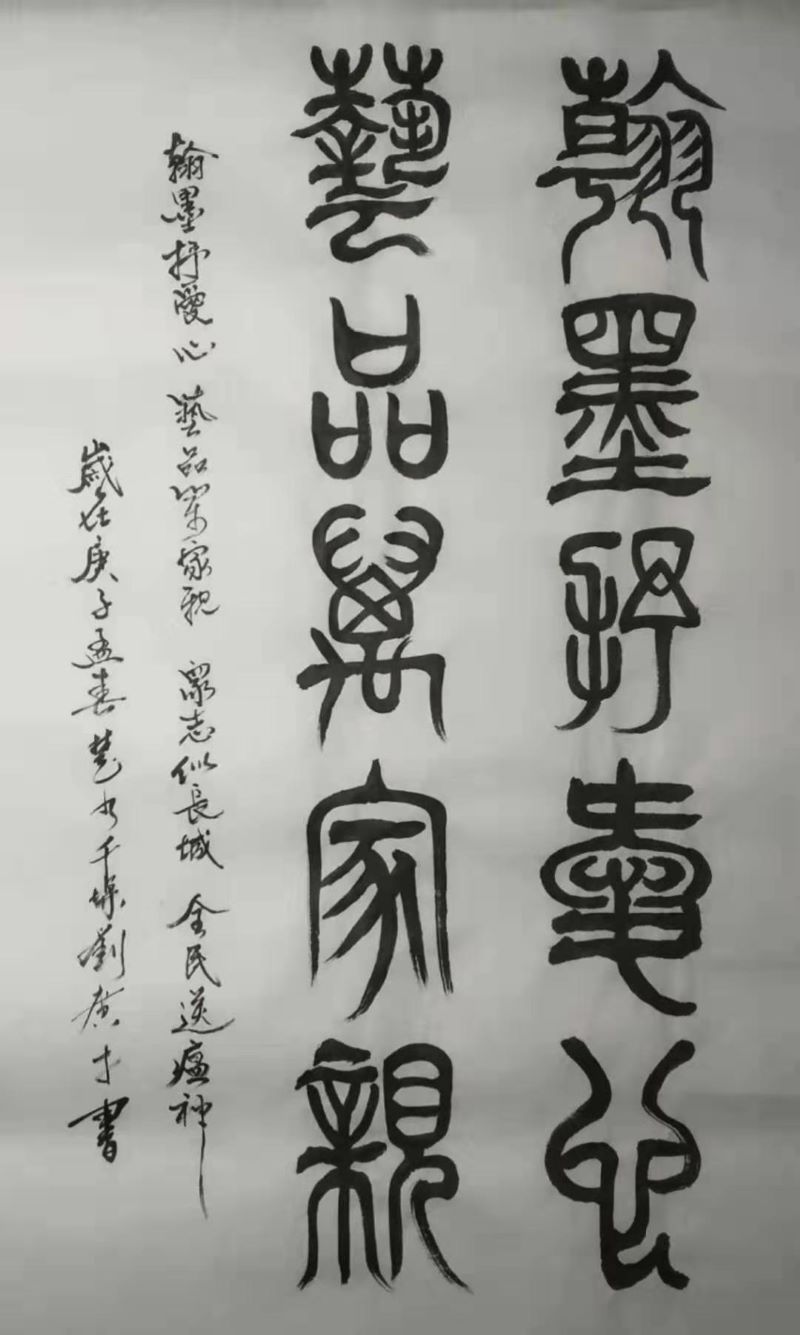 翰墨抒愛心
藝品萬家親
翰墨抒愛心 藝品萬家親 眾志似長城 全民送瘟神
歲在庚子孟春楚水千垛劉廣才書